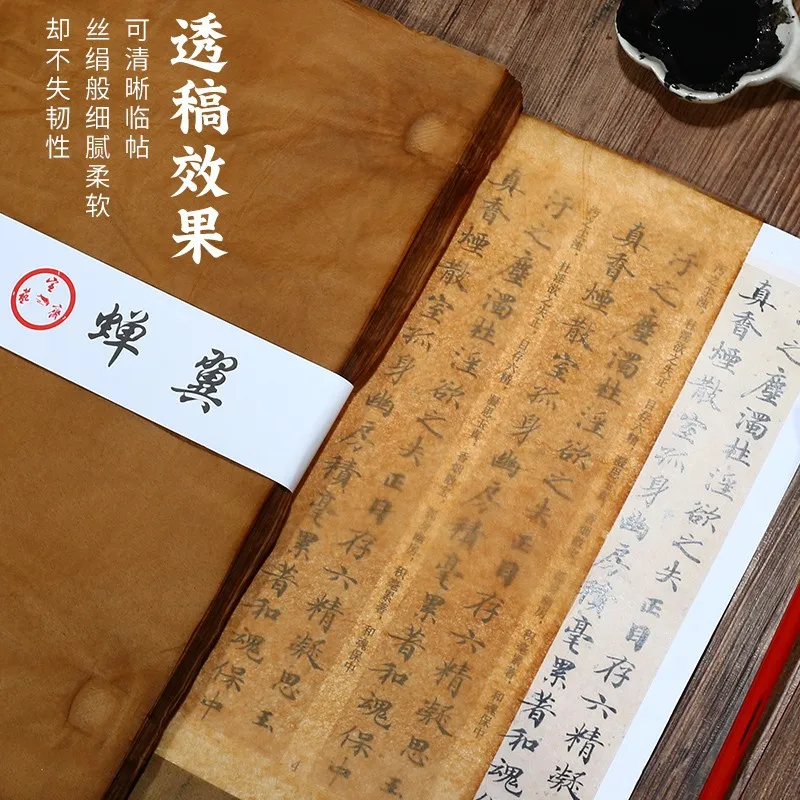 透稿效果
可清晰临帖
丝绢般细腻柔软
却不失韧性
蝉翼
之塵濁杜淫欲之失正目存六精凝
真香煙散室孤身幽房積毫累著和魂
汙之塵濁杜淫欲之失正目存六精凝思玉
真香煙散室孤身幽房積毫累著和魂保中
积毫累著，和魂保中
汙之塵濁杜淫欲之失正目存六精凝思玉
真香煙散室孤身幽房積毫累著和魂保中